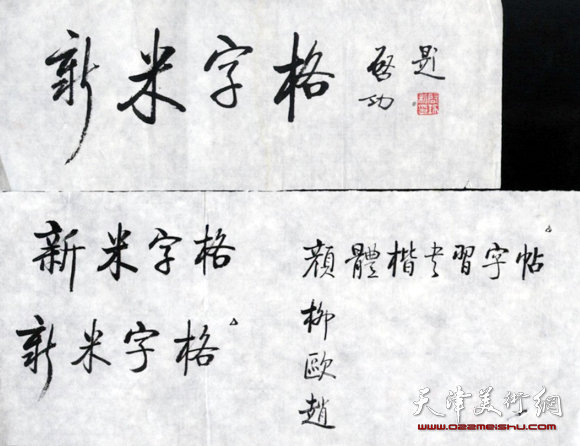 新米字格
啓功
題
新米字格
新米字格
顔體楷书習字帖
柳
歐
趙
天津美術網
www.022meishu.com